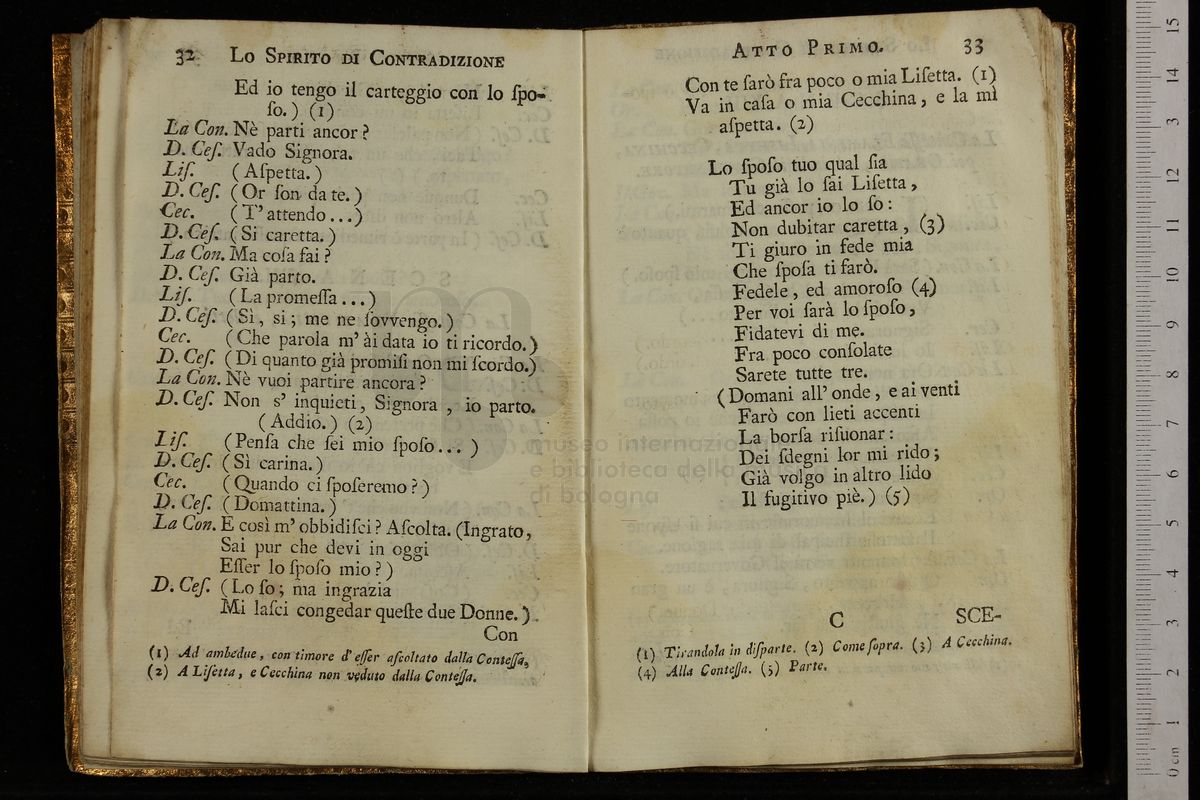 32 Lo Spirito di Contradizione
Ed io tengo il carteggio con lo ſpo-
ſo.) (1)
La Con. Nè parti ancor?
D. Ceſ. Vado Signora.
Liſ. (Aſpetta.)
D. Ceſ. (Or ſon da te.)
Cec. (T' attendo...)
D. Ceſ. (Si caretta.)
La Con. Ma coſa fai?
D. Ceſ. Già parto.
Liſ. (La promeſſa...)
D. Ceſ. (Sì, si; me ne ſovvengo.)
Cec. (Che parola m' ài data io ti ricordo.)
D. Ceſ. (Di quanto già promiſi non mi ſcordo.)
La Con. Nè vuoi partire ancora?
D. Ceſ. Non s' inquieti, Signora, io parto.
(Addio.) (2)
Liſ. (Penſa che ſei mio ſpoſo...)
D. Ceſ. (Sì carina.)
Cec. (Quando ci ſpoſeremo?)
D. Ceſ. (Domattina.)
La Con. E così m' obbidiſci? Aſcolta. (Ingrato,
Sai pur che devi in oggi
Eſſer lo ſpoſo mio?)
D. Ceſ. (Lo ſo; ma ingrazia
Mi laſci congedar queſte due Donne.)
Con
(1) Ad ambedue, con timore d' eſſer aſcoltato dalla Conteſſa,
(2) A Liſetta, e Cecchina non veduto dalla Conteſſa.
Atto Primo. 33
Con te ſarò fra poco o mia Liſetta. (1)
Va in caſa o mia Cecchina, e la mì
aſpetta. (2)
Lo ſpoſo tuo qual ſia
Tu già lo ſai Liſetta,
Ed ancor io lo ſo:
Non dubitar caretta, (3)
Ti giuro in fede mia
Che ſpoſa ti farò.
Fedele, ed amoroſo (4)
Per voi ſarà lo ſpoſo,
Fidatevi di me.
Fra poco conſolate
Sarete tutte tre.
(Domani all' onde, e ai venti
Farò con lieti accenti
La borſa riſuonar:
Dei ſdegni lor mi rido;
Già volgo in altro lido
Il fugitivo piè.) (5)
C SCE-
(1) Tirandola in diſparte. (2) Come ſopra. (3) A Cecchina.
(4) Alla Conteſſa. (5) Parte.
museo internazionale
e biblioteca della musica
di bologna